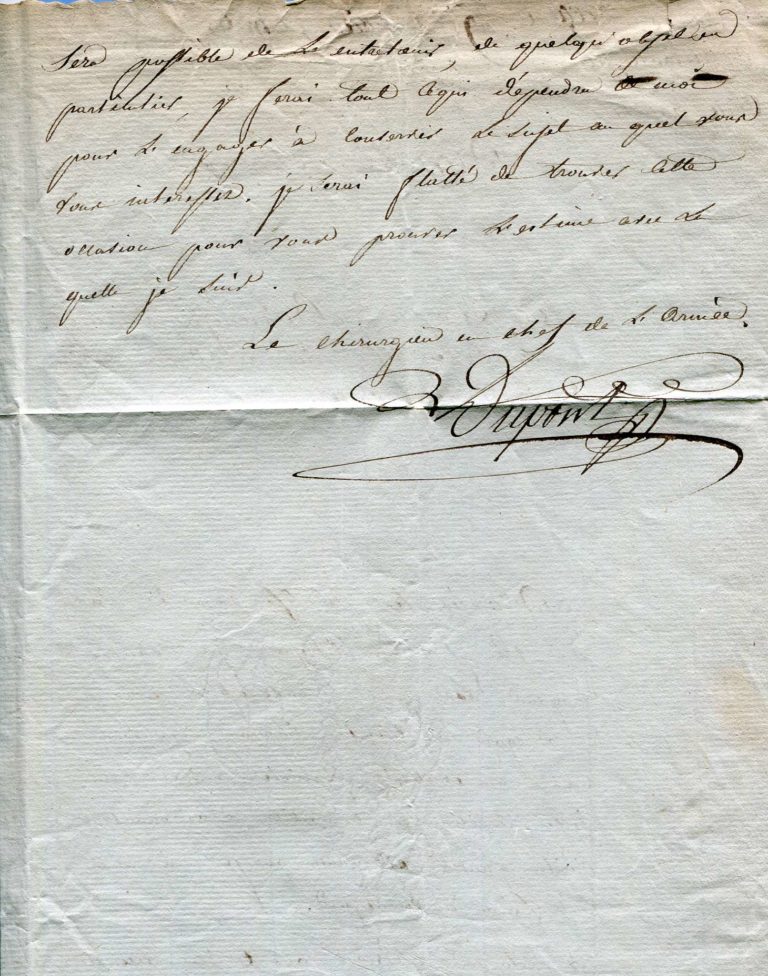 sera possible de L'entretenir, de quelqu'objet en
particulier, je ferai tout cequi dépendra de moi
pour L'engager à conserver Le sujet au quel vous
vous interessez. je serai flatté de trouver cette
occasion pour vous prouver L'estime avec La
quelle je suis.
Le chirurgien en chef de L'Armée.
Dupont